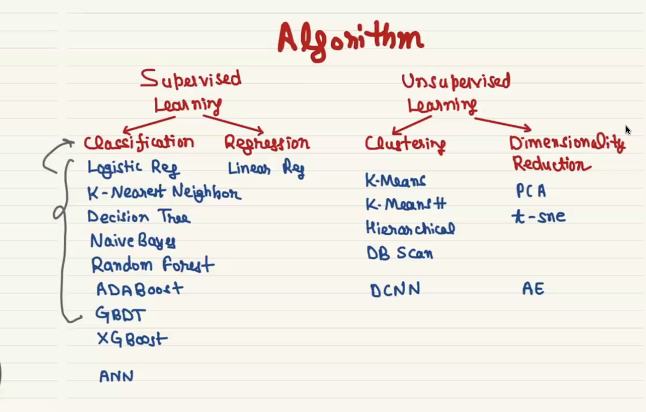 Algorithm
Supervised
Learning
Unsupervised
Learning
Classification
Logistic Reg
K-Nearest Neighbor
Decision Tree
Naive Bayes
Random Forest
ADABoost
GBDT
XGBoost
ANN
Regression
Linear Reg
Clustering
K-Means
K-Means++
Hierarchical
DB Scan
DCNN
Dimensionality
Reduction
PCA
t-sne
AE